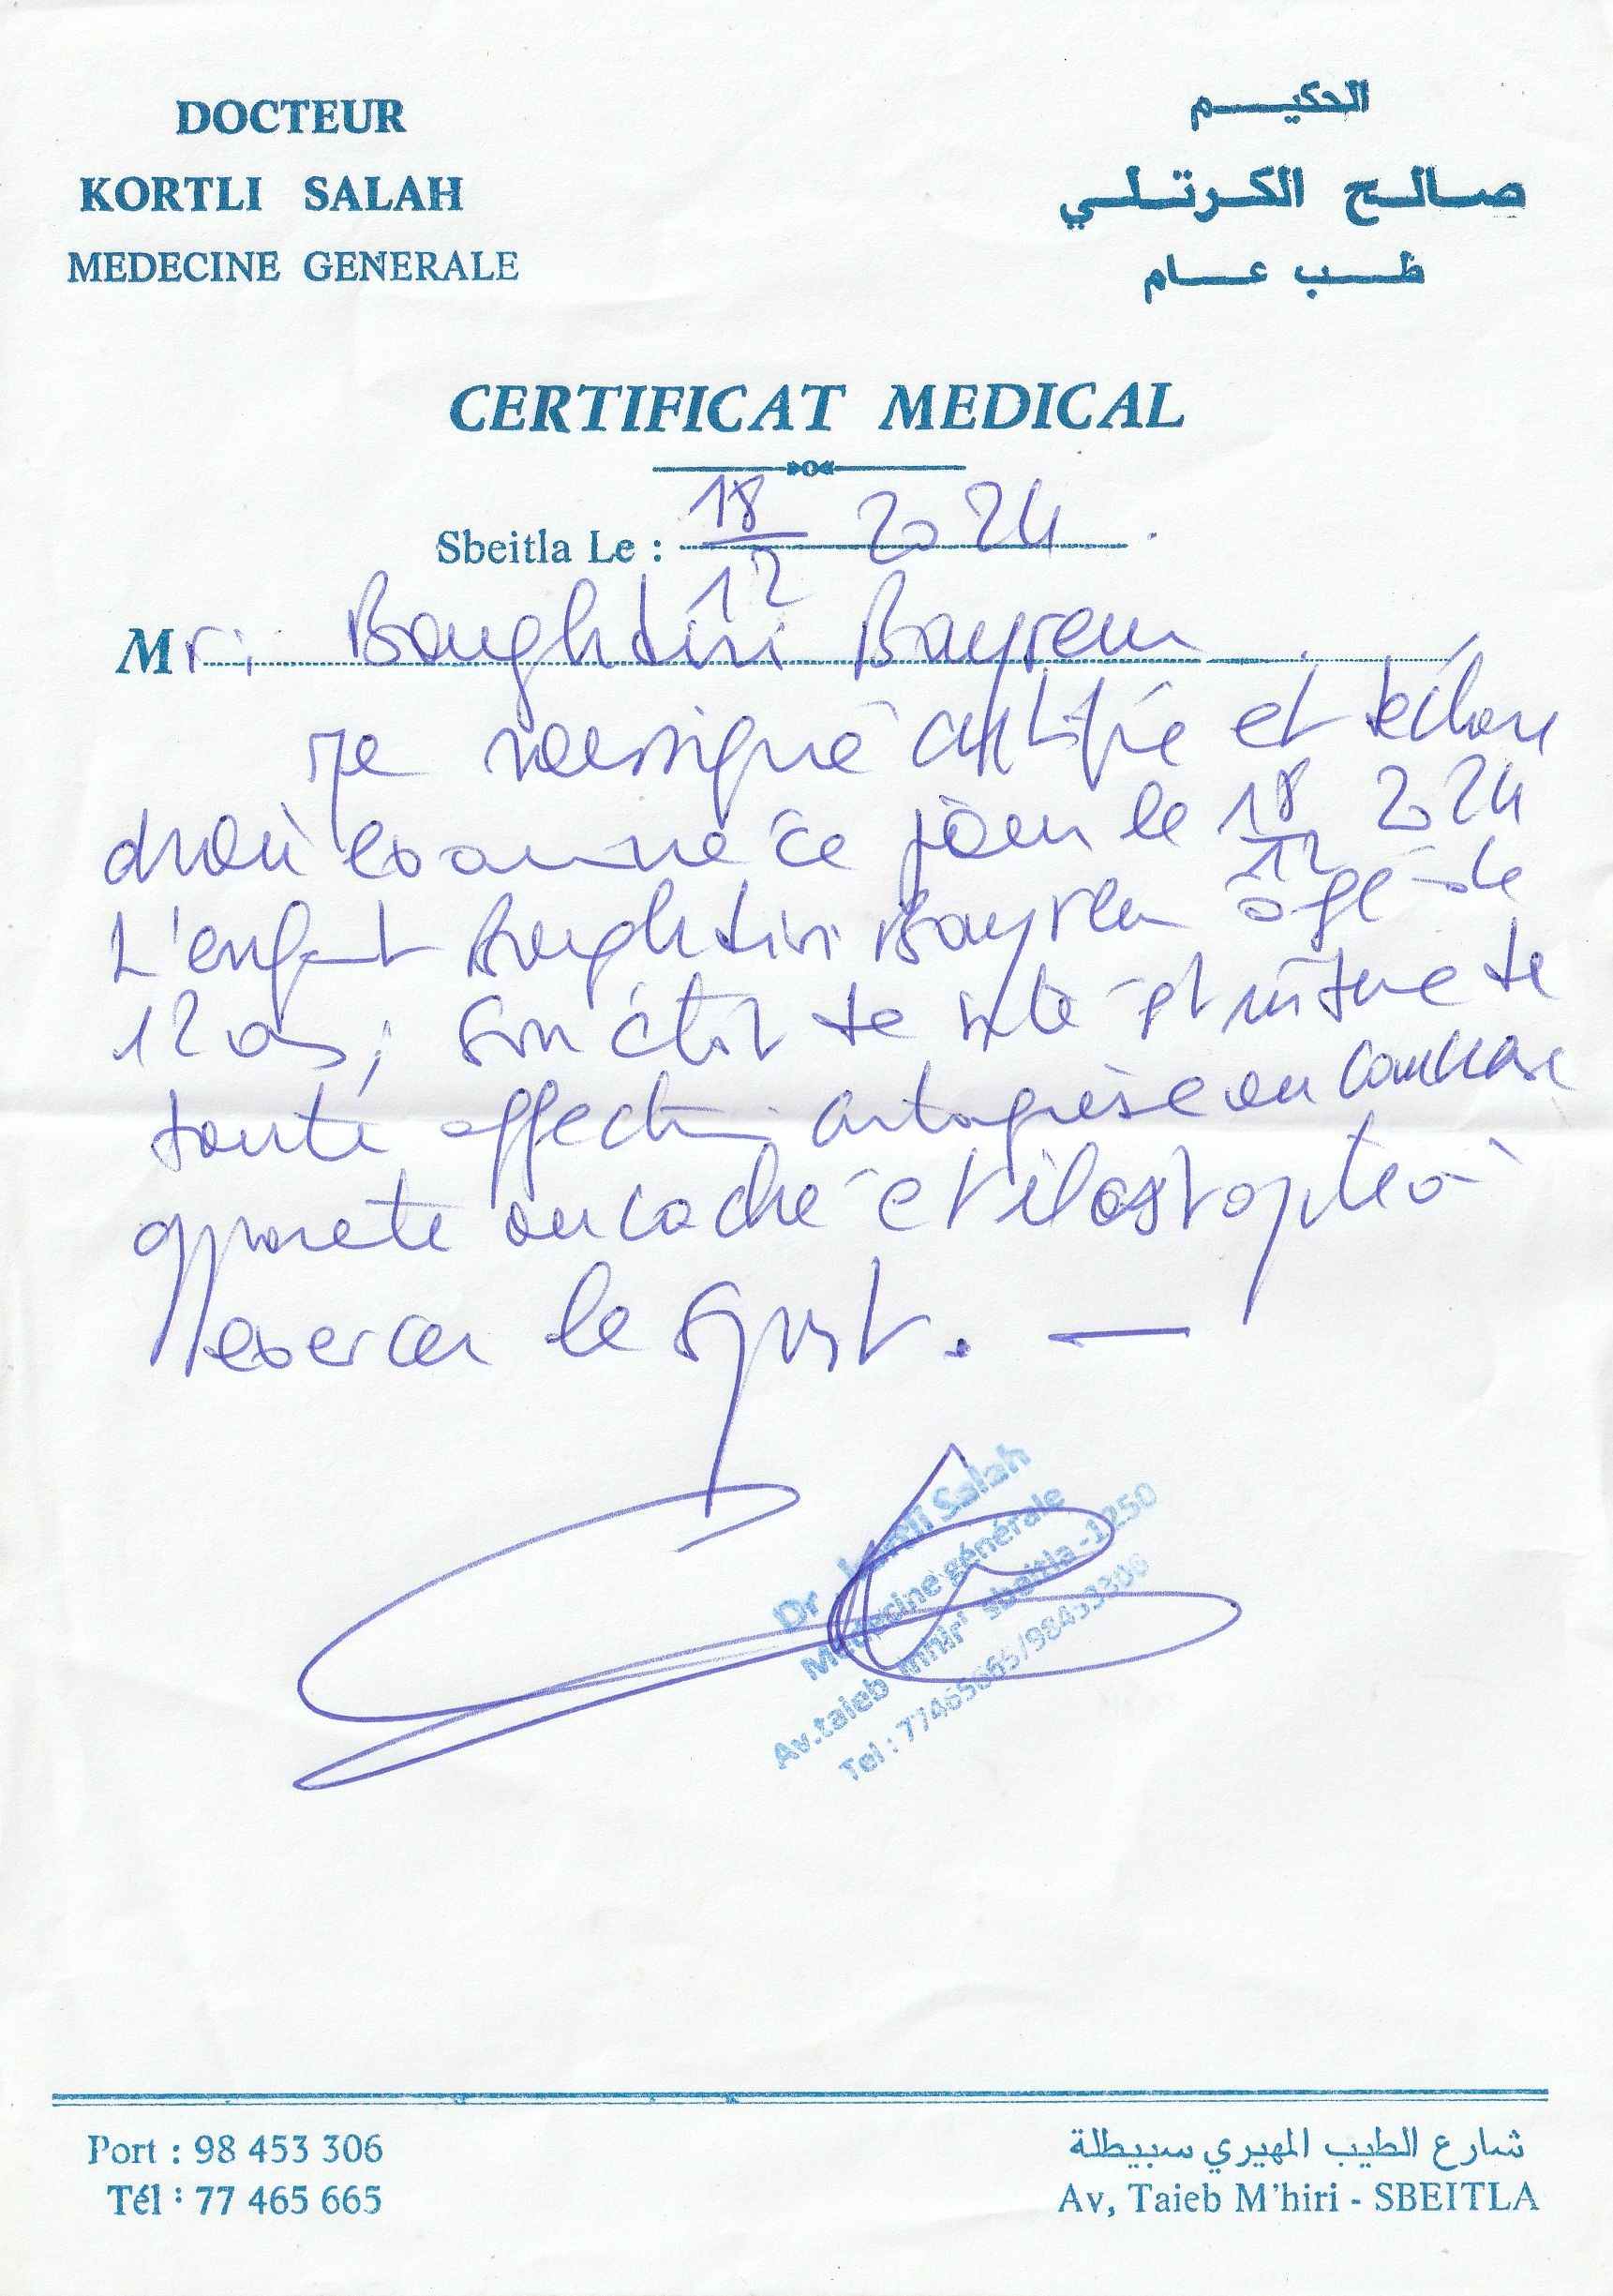 DOCTEUR
KORTLI SALAH
MEDECINE GENERALE
الحكيم
صالح الكرتلي
طب عام
CERTIFICAT MEDICAL
Sbeitla Le : 18/12 2024.
Mr: Boughdiri Bayrem
Je certifie et déclare
avoir examiné ce jour le 18/12 2024
L'enfant Boughdiri Bayrem âgé de
12 ans; son état de santé et de
toute affection ou
apparente ou caché et il est apte à
exercer le sport. —
Dr. Kortli Salah
Médecine générale
Av.taieb mhiri sbeitla-1250
Tel : 77465665/98453306
Port : 98 453 306
Tél : 77 465 665
شارع الطيب المهيري سبيطلة
Av, Taieb M'hiri - SBEITLA